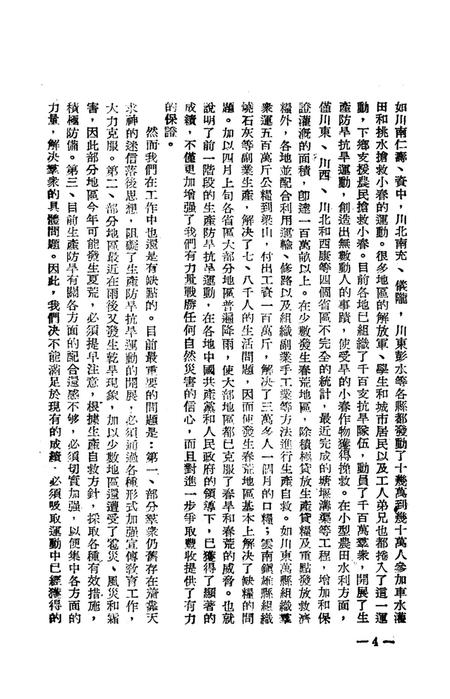 如川南仁壽、資中，川北南充、儀隴，川東彭水等各縣都發動了十幾萬到幾十萬人參加車水灌
田和挑水搶救小春的運動。很多地區的解放軍、學生和城市居民以及工人弟兄也都捲入了這一運
動，下鄉支援農民搶救小春。目前各地已組織了千百支抗旱隊伍，動員了千百萬羣衆，開展了生
產防旱抗旱運動，創造出無數動人的事蹟，使受旱的小春作物獲得挽救。在小型農田水利方面，
僅川東、川西、川北和西康等四個省區不完全的統計，最近完成的塘堰溝渠等工程，增加和保
證灌溉的面積，即達一百萬畝以上。在少數發生春荒地區，除積極貸放生產貸糧及重點發放救濟
糧外，各地並配合利用運輸、修路以及組織副業手工業等方法進行生產自救。如川東萬縣組織羣
衆運五百萬斤公糧到梁山，付出工資一百萬斤，解決了三萬多人一個月的口糧；雲南鎭雄縣組織
燒石灰等副業生產，解决了七、八千人的生活問題，因而使發生春荒地區基本上解决了缺糧的問
題。加以四月上旬各省區大部分地區普遍降雨，使大部地區都已克服了春旱和春荒的威脅。也就
說明了前一階段的生產防旱抗旱運動，在各地中國共產黨和人民政府的領導下，已獲得了顯著的
成績，不僅更加增强了我們有力量戰勝任何自然災害的信心，而且對進一步爭取豐收提供了有力
的保證。
然而我們在工作中也還是有缺點的。目前最重要的問題是：第一、部分羣衆仍舊存在着靠天
求神的迷信落後思想，阻礙了生產防旱抗旱運動的開展，必須通過各種形式加强宣傳敎育工作，
大力克服。第二、部分地區最近在雨後又發生乾旱現象，加以少數地區還遭受了雹災、風災和霜
害，因此部分地區今年可能發生夏荒，必須提早注意，根據生產自救方針，採取各種有效措施，
積極防備。第三、目前生產防旱有關各方面的配合還感不够，必須切實加强，以便集中各方面的
力量，解决羣衆的具體問題。因此，我們决不能滿足於現有的成績，必須吸取運動中已經獲得的
—4—